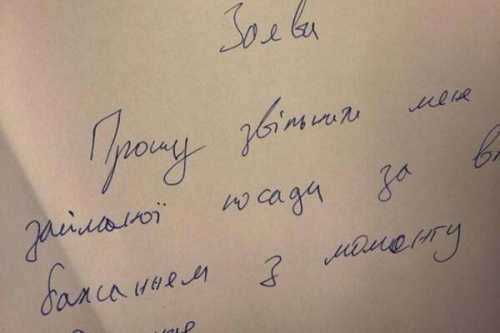 Заява
Прошу звільнити мене
займаної посади за вл
бажанням з моменту